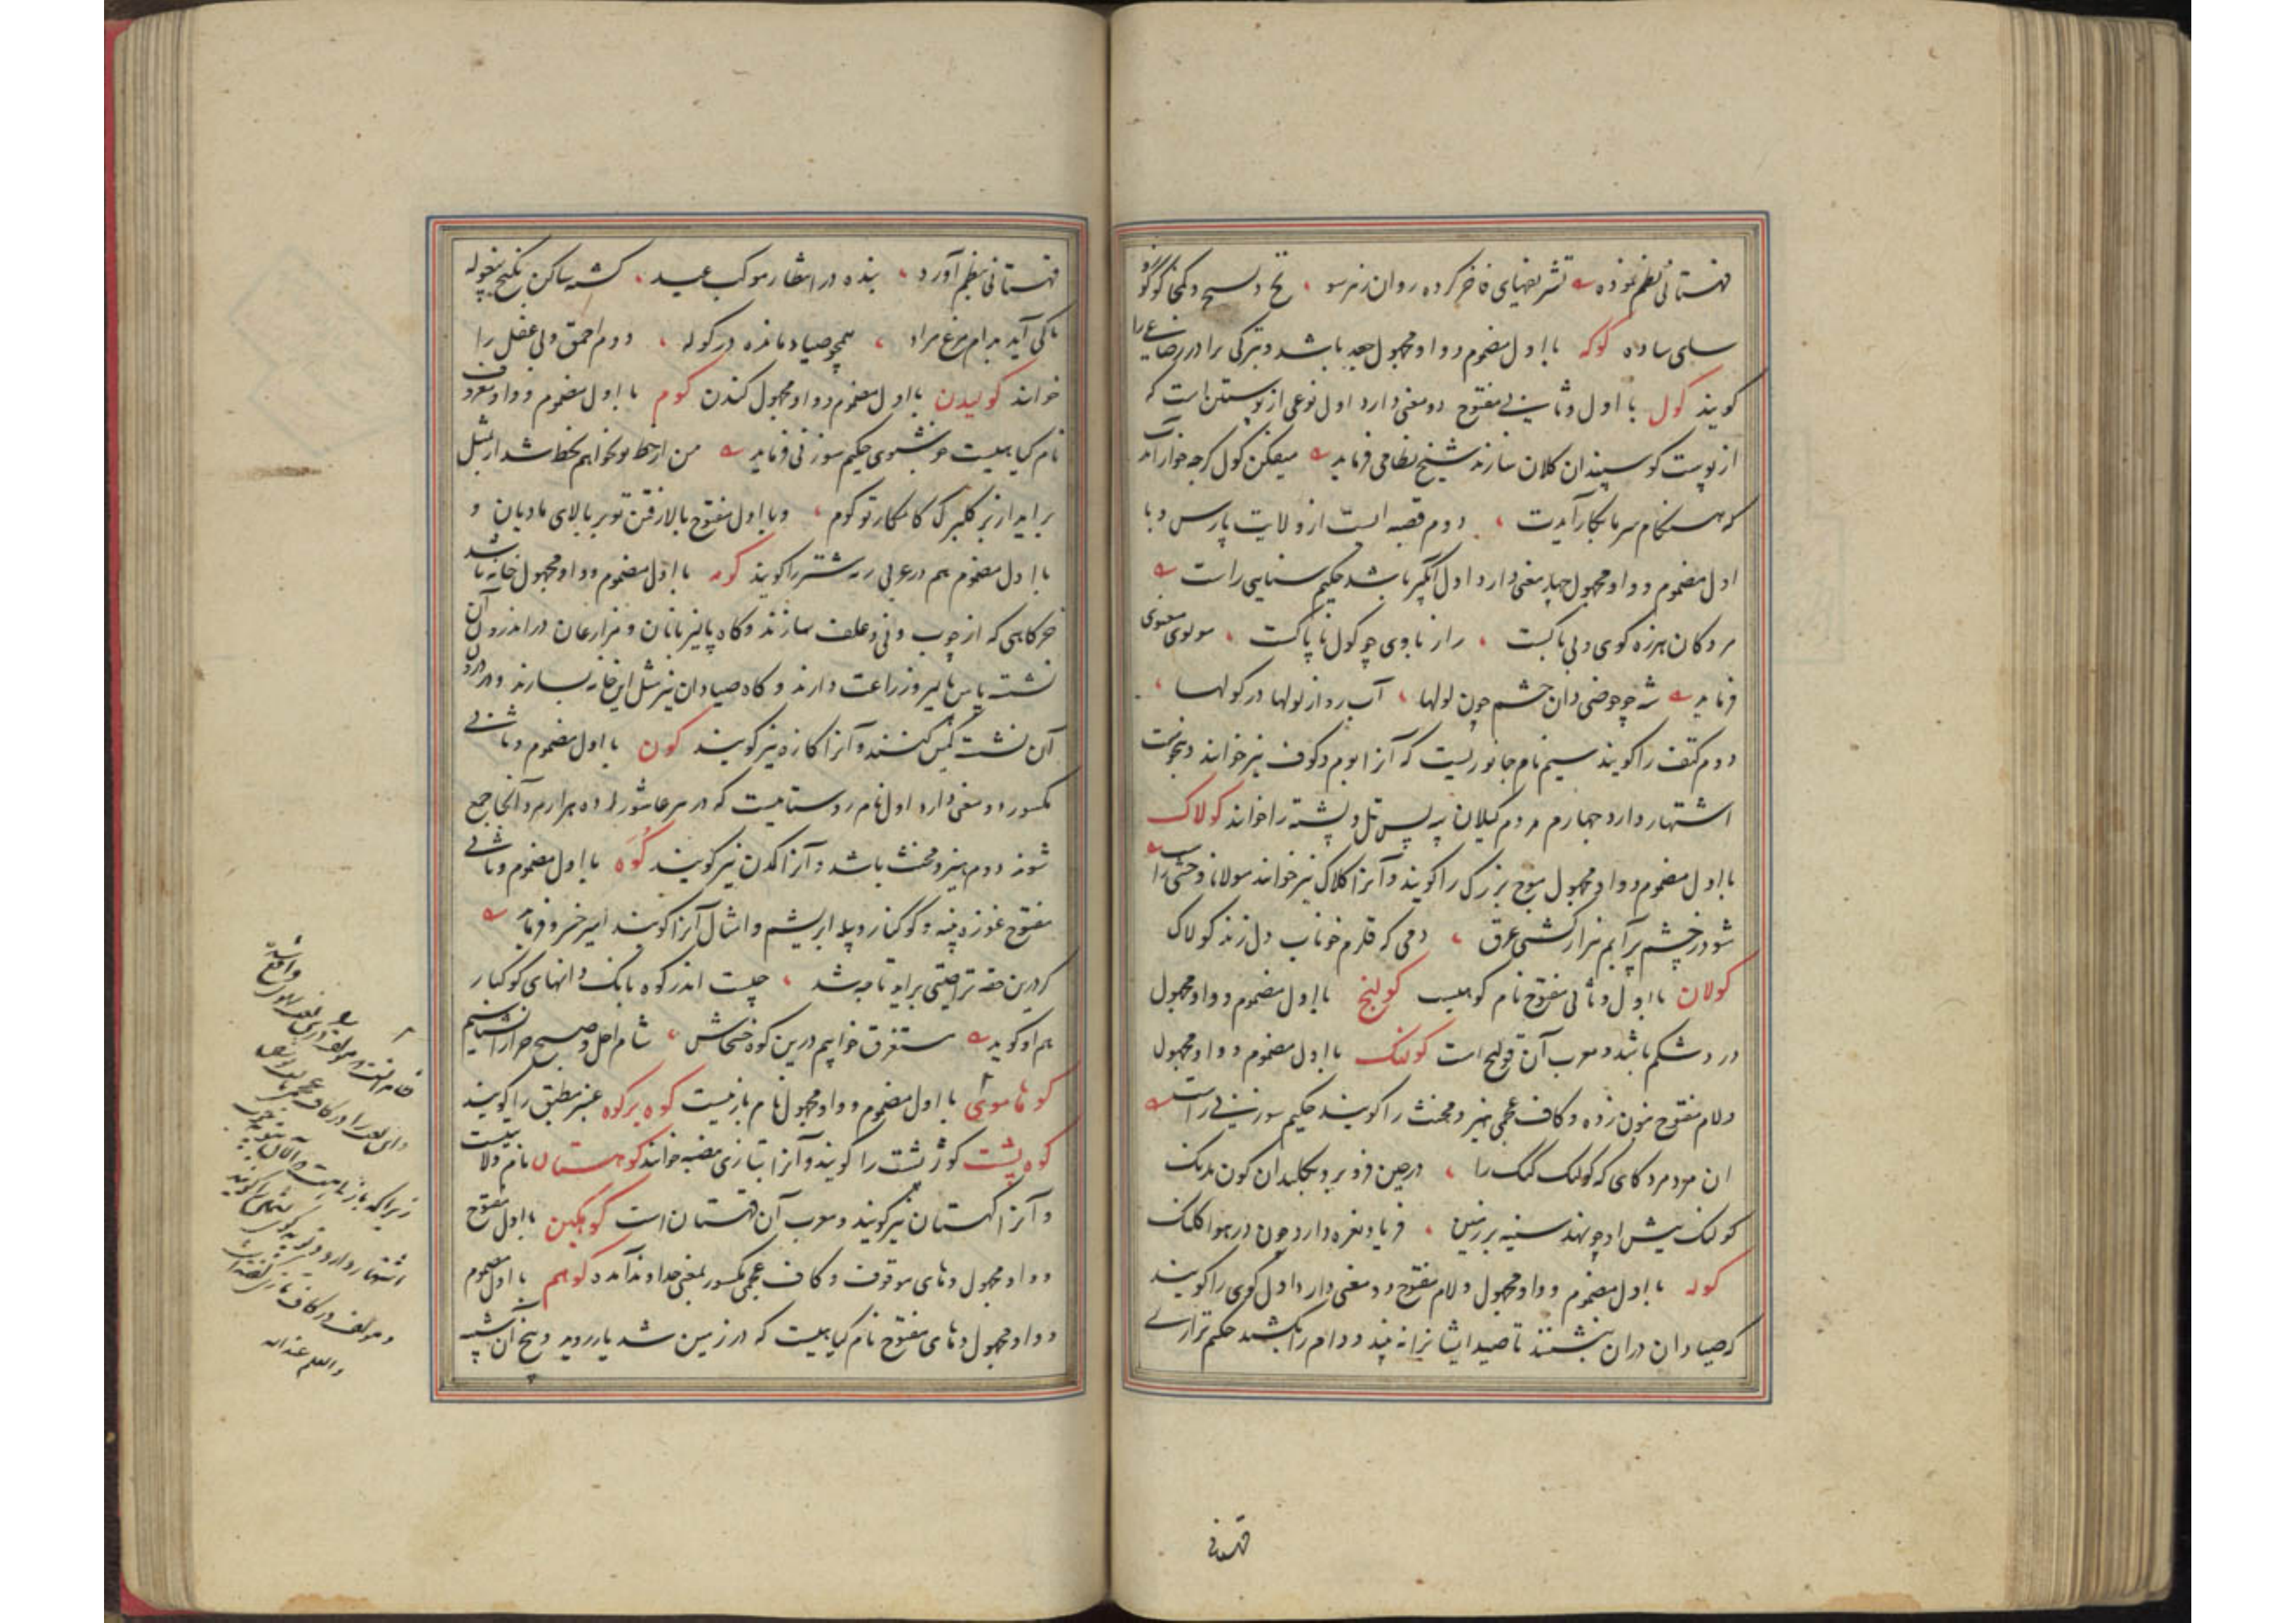 قهستانی نظم نموده تشریفهای فاخر کرده روان زهر سو نخ و نسیج و کمخا کوکو و
سلمی ساده کوکه با اول مضموم و واو مجهول جغد باشد و بترکی برادر رضاعی را
کویند کول با اول و ثانی مفتوح دو معنی دارد اول نوعی از پوستین است که
از پوست کوسپندان کلان سازند شیخ نظامی فرماید میفکن کول کرچه خوار آیدت
که هنکام سرما بکار آیدت دوم قصبه ایست از ولایت پارس و با
اول مضموم و واو مجهول چهار معنی دارد اول آبگیر باشد حکیم سنایی راست
مردکان هرزه کوی و بی باکست راز با وی چو کول ناپاکست مولوی معنوی
فرماید شه چو حوضی دان حشم چون لولها آب رود از لولها در کولها
دوم کتف را کویند سیم نام جانوریست که آنرا بوم و کوف نیز خوانند و بنحوست
اشتهار دارد چهارم مردم کیلان پس تل و پشته را خوانند کولاک
با اول مضموم و واو مجهول موج بزرک را کویند و آنرا کلاک نیز خوانند مولانا وحشی راست
شود ز چشم پر آبم هزار کشتی غرق دمی که قلزم خوناب دل زند کولاک
کولان با اول و ثانی مفتوح نام کوهیست کولنج با اول مضموم و واو مجهول
درد شکم باشد و معرب آن قولنج است کولنک با اول مضموم و واو مجهول
و لام مفتوح بنون زده و کاف عجمی هیز و مخنث را کویند حکیم سوزنی راست
ان مرد مردکای که کولنک کنک را درحین فرو برد بکلیدان کون مدنک
کولنک پیش او چو نهد سینه بر زمین فریاد و نعره دارد چون در هوا کلنک
کوله با اول مضموم و واو مجهول و لام مفتوح دو معنی دارد اول کوی را کویند
که صیادان دران بنشینند تا صید ایشانرا نه بیند و دام را بکشند حکیم نزاری
قهستانی
قهستانی بنظم آورد بنده در انتظار موکب عید کشته ساکن بکنج بیغوله
تا کی آید بدام مرغ مراد همچو صیاد مانده در کوله دوم احمق و بی عقل را
خوانند کولیدن با اول مضموم و واو مجهول کندن کوم با اول مضموم و واو معروف
نام کیاهیست خوشبوی حکیم سوزنی فرماید من از خط تو نخواهم بخط شد ار بمثل
براید از بر کلبرک کامکار تو کوم و با اول مفتوح بالا رفتن نر بر بالای مادیان و
با اول مضموم هم در عربی رمه شتر را کویند کومه با اول مضموم و واو مجهول خانه باشد
خرکاهی که از چوب و نی و علف سازند و کاه پالیزبانان و مزارعان در اندرون آن
نشسته پاس پالیز و زراعت دارند و کاه صیادان نیز مثل این خانه بسازند و در درون
آن نشسته کمین کنند و آنرا کازه نیز کویند کون با اول مضموم و ثانی
مکسور دو معنی دارد اول نام روستاییست که در هر عاشورا ده هزار مرد آنجا جمع
شوند دوم هیز و مخنث باشد و آنرا کدن نیز کویند کوه با اول مضموم و ثانی
مفتوح غوزه پنبه و کوکنار و پیله ابریشم و امثال آنرا کویند امیر خسرو فرماید
کر درین حقه تراحتی براید تا چه شد چیست اندر کوه بانک دانهای کوکنار
هم او کوید مستغرق خوابیم درین کوه خشخاش شام اجل و صبح جزا را نشناسیم
کوهاموئی با اول مضموم و واو مجهول نام بازیست کوه برکوه عنبر مطبق را کویند
کوه پشت کوژپشت را کویند و آنرا بتازی محدب خوانند کوهستان نام ولایتیست
و آنرا کهستان نیز کویند و معرب آن قهستان است کوهکین با اول مفتوح
و واو مجهول و های موقوف و کاف عجمی مکسور بمعنی خداوند آمده کوهم با اول مضموم
و واو مجهول و های مفتوح نام کیاهیست که در زمین شد یار روید و بیخ آن شبیه
زیرا که
اشتهار دارد و
و مولف در کاف تازی
والعلم عندالله